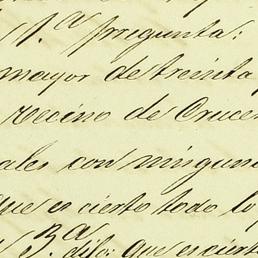 1.ª pregunta:
mayor de treinta
vecino de Cruce
ales con ningun
que es cierto todo lo
3.ª dijo: que es ciert